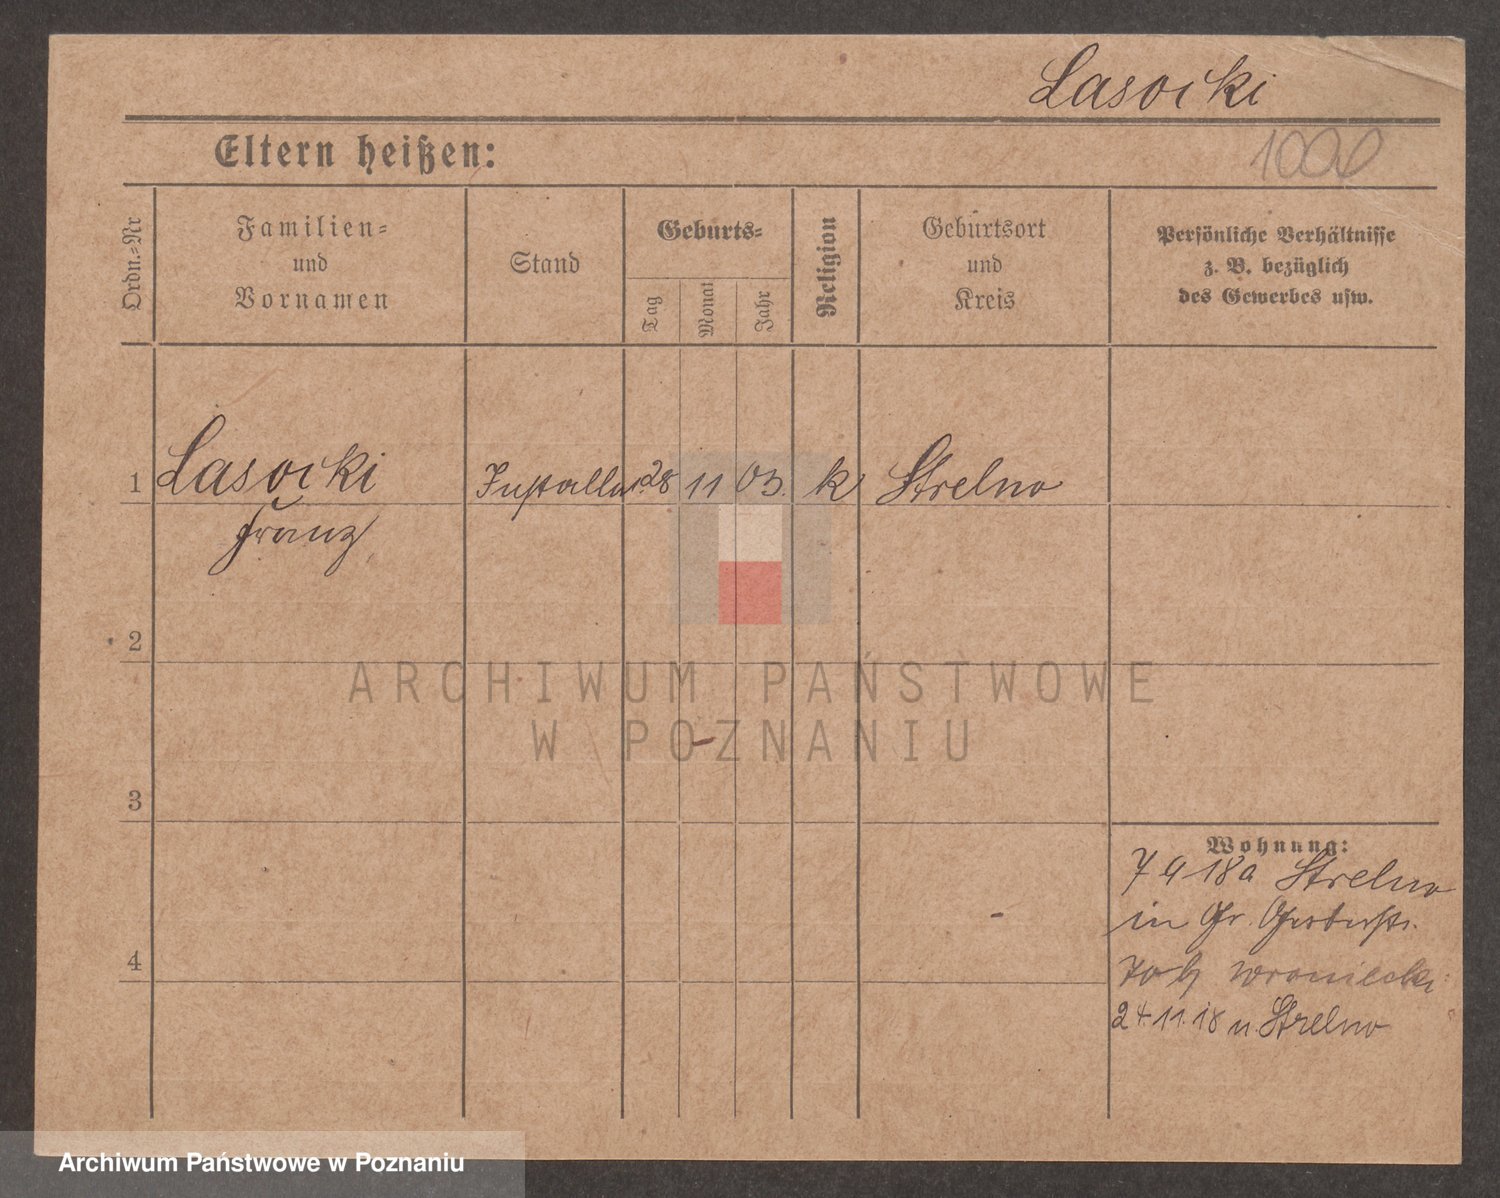 Lasocki
Eltern heißen:
1000
Ordn.-Nr
Familien-
und
Vornamen
Stand
Geburts-
Tag
Monat
Jahr
Religion
Geburtsort
und
Kreis
Persönliche Verhältnisse
z. B. bezüglich
des Gewerbes usw.
1 Lasocki 28 11 03. k Strelno
Franz
2
ARCHIWUM PAŃSTWOWE
W POZNANIU
3
4
Wohnung:
7 9 18 a Strelno
in Gr.
24.11.18 n. Strelno
Archiwum Państwowe w Poznaniu